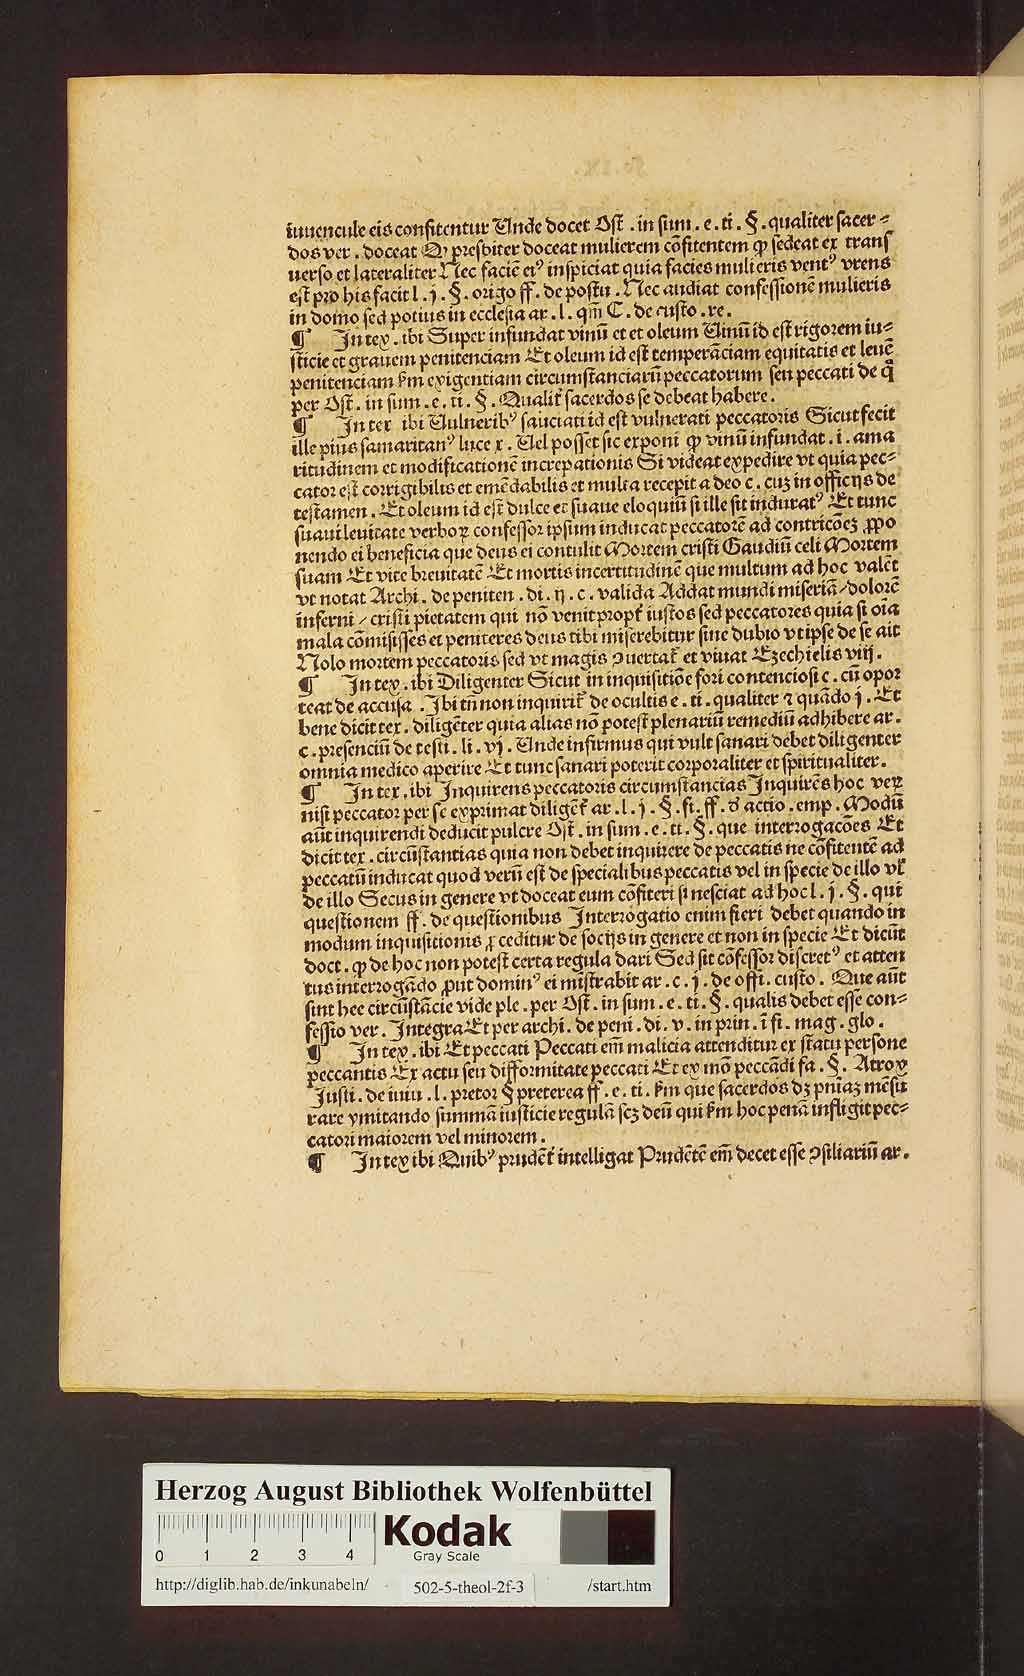 iuuencule eis confitentur Unde docet Ost . in sum . e . ti . §. qualiter sacer⸗
dos ver . doceat Qꝫ presbiter doceat mulierem cōfitentem ꝙ sedeat ex trans
uerso et lateraliter Nec faciē eiꝰ inspiciat quia facies mulieris ventꝰ vrens
est pro his facit l . j . §. origo ff . de postu . Nec audiat confessionē mulieris
in domo sed potius in ecclesia ar . l . qm̄ C . de custo . re .
¶ In tex . ibi Super infundat vinū et et oleum Uinū id est rigorem iu⸗
sticie et grauem penitenciam Et oleum id est temperāciam equitatis et leuē
penitenciam ẜm exigentiam circumstanciarū peccatorum seu peccati de q̄
per Ost . in sum . e . ti . §. Qualit̉ sacerdos se debeat habere .
¶ In tex ibi Uulneribꝰ sauciati id est vulnerati peccatoris Sicut fecit
ille pius samaritanꝰ luce x . Uel posset sic exponi ꝙ vinū infundat . i . ama
ritudinem et modificationē increpationis Si videat expedire vt quia pec⸗
cator est corrigibilis et emēdabilis et multa recepit a deo c . cuz in officijs de
testamen . Et oleum id est dulce et suaue eloquiū si ille sit induratꝰ Et tunc
suaui leuitate verboꝝ confessor ipsum inducat peccatorē ad contricōeꝫ ꝓpo
nendo ei beneficia que deus ei contulit Mortem cristi Gaudiū celi Mortem
suam Et vite breuitatē Et mortis incertitudinē que multum ad hoc valēt
vt notat Archi . de peniten . di . ij . c . valida Addat mundi miseriā / dolorē
inferni / cristi pietatem qui nō venit propt̉ iustos sed peccatores quia si oīa
mala cōmisisses et peniteres deus tibi miserebitur sine dubio vt ipse de se ait
Nolo mortem peccatoris sed vt magis ꝯuertat̉ et viuat Ezechielis viij .
¶ In tex . ibi Diligenter Sicut in inquisitiōe fori contenciosi c . cū opor
teat de accusa . Ibi tn̄ non inquirit̉ de ocultis e . ti . qualiter ⁊ quādo j . Et
bene dicit tex . diligēter quia alias nō potest plenariū remediū adhibere ar .
c . presenciū de testi . li . vj . Unde infirmus qui vult sanari debet diligenter
omnia medico aperire Et tunc sanari poterit corporaliter et spiritualiter .
¶ In tex . ibi Inquirens peccatoris circumstancias Inquirēs hoc veꝝ
nisi peccator per se exprimat diligēt̉ ar . l . j . §. si . ff . đ actio . emp . Modū
aūt inquirendi deducit pulcre Ost . in sum . e . ti . §. que interrogacōes Et
dicit tex . circūstantias quia non debet inquirere de peccatis ne cōfitentē ad
peccatū inducat quod verū est de specialibus peccatis vel in specie de illo vl̉
de illo Secus in genere vt doceat eum cōfiteri si nesciat ad hoc l . j . §. qui
questionem ff . de questionibus Interrogatio enim fieri debet quando in
modum inquisitionis ꝓceditur de socijs in genere et non in specie Et dicūt
doct . ꝙ de hoc non potest certa regula dari Sed sit cōfessor discretꝰ et atten
tus interrogādo ꝓut dominꝰ ei mīstrabit ar . c . j . de offi . custo . Que aūt
sint hee circūstācie vide ple . per Ost . in sum . e . ti . §. qualis debet esse con⸗
fessio ver . Integra Et per archi . de peni . di . v . in prin . ī fi . mag . glo .
¶ In tex . ibi Et peccati Peccati em̄ malicia attenditur ex statu persone
peccantis Ex actu seu difformitate peccati Et ex mō peccādi fa . §. Atrox
Justi . de iniu . l . pretor § preterea ff . e . ti . ẜm que sacerdos dꝫ pniaꝫ mēsu
rare ymitando summā iusticie regulā scꝫ deū qui ẜm hoc penā infligit pec⸗
catori maiorem vel minorem .
¶ In tex ibi Quibꝰ prudēt̉ intelligat Prudētē em̄ decet esse ꝯsiliariū ar .
Herzog August Bibliothek Wolfenbüttel
0 1 2 3 4
Kodak
Gray Scale
http://diglib.hab.de/inkunabeln/ 502-5-theol-2f-3 /start.htm